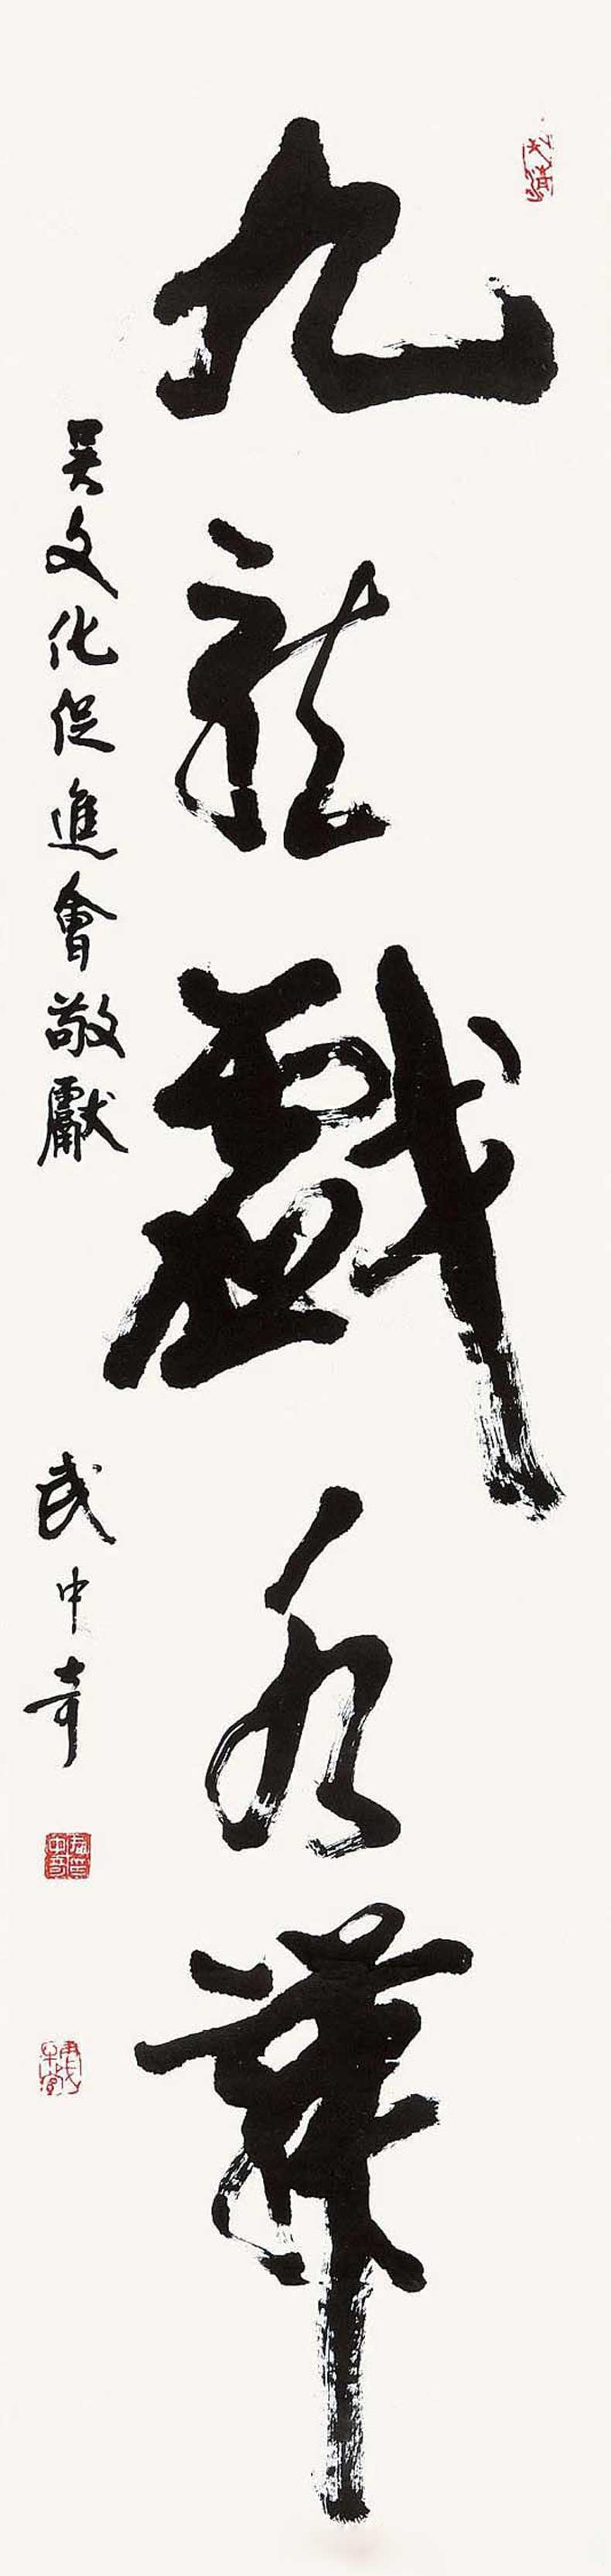 九龍戲水舞
吴文化促進會敬獻
武中奇